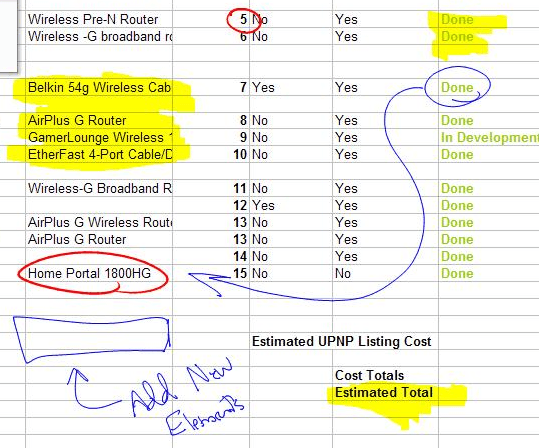 Wireless Pre-N Router 5 No Yes Done
Wireless -G broadband ro 6 No Yes Done
Belkin 54g Wireless Cab 7 Yes Yes Done
AirPlus G Router 8 No Yes Done
GamerLounge Wireless 9 No Yes In Development
EtherFast 4-Port Cable/D 10 No Yes Done
Wireless-G Broadband R 11 No Yes Done
12 Yes Yes Done
AirPlus G Wireless Route 13 No Yes Done
AirPlus G Router 13 No Yes Done
14 No Yes Done
Home Portal 1800HG 15 No No Done
Estimated UPNP Listing Cost
Cost Totals
Estimated Total
Add New
Elements